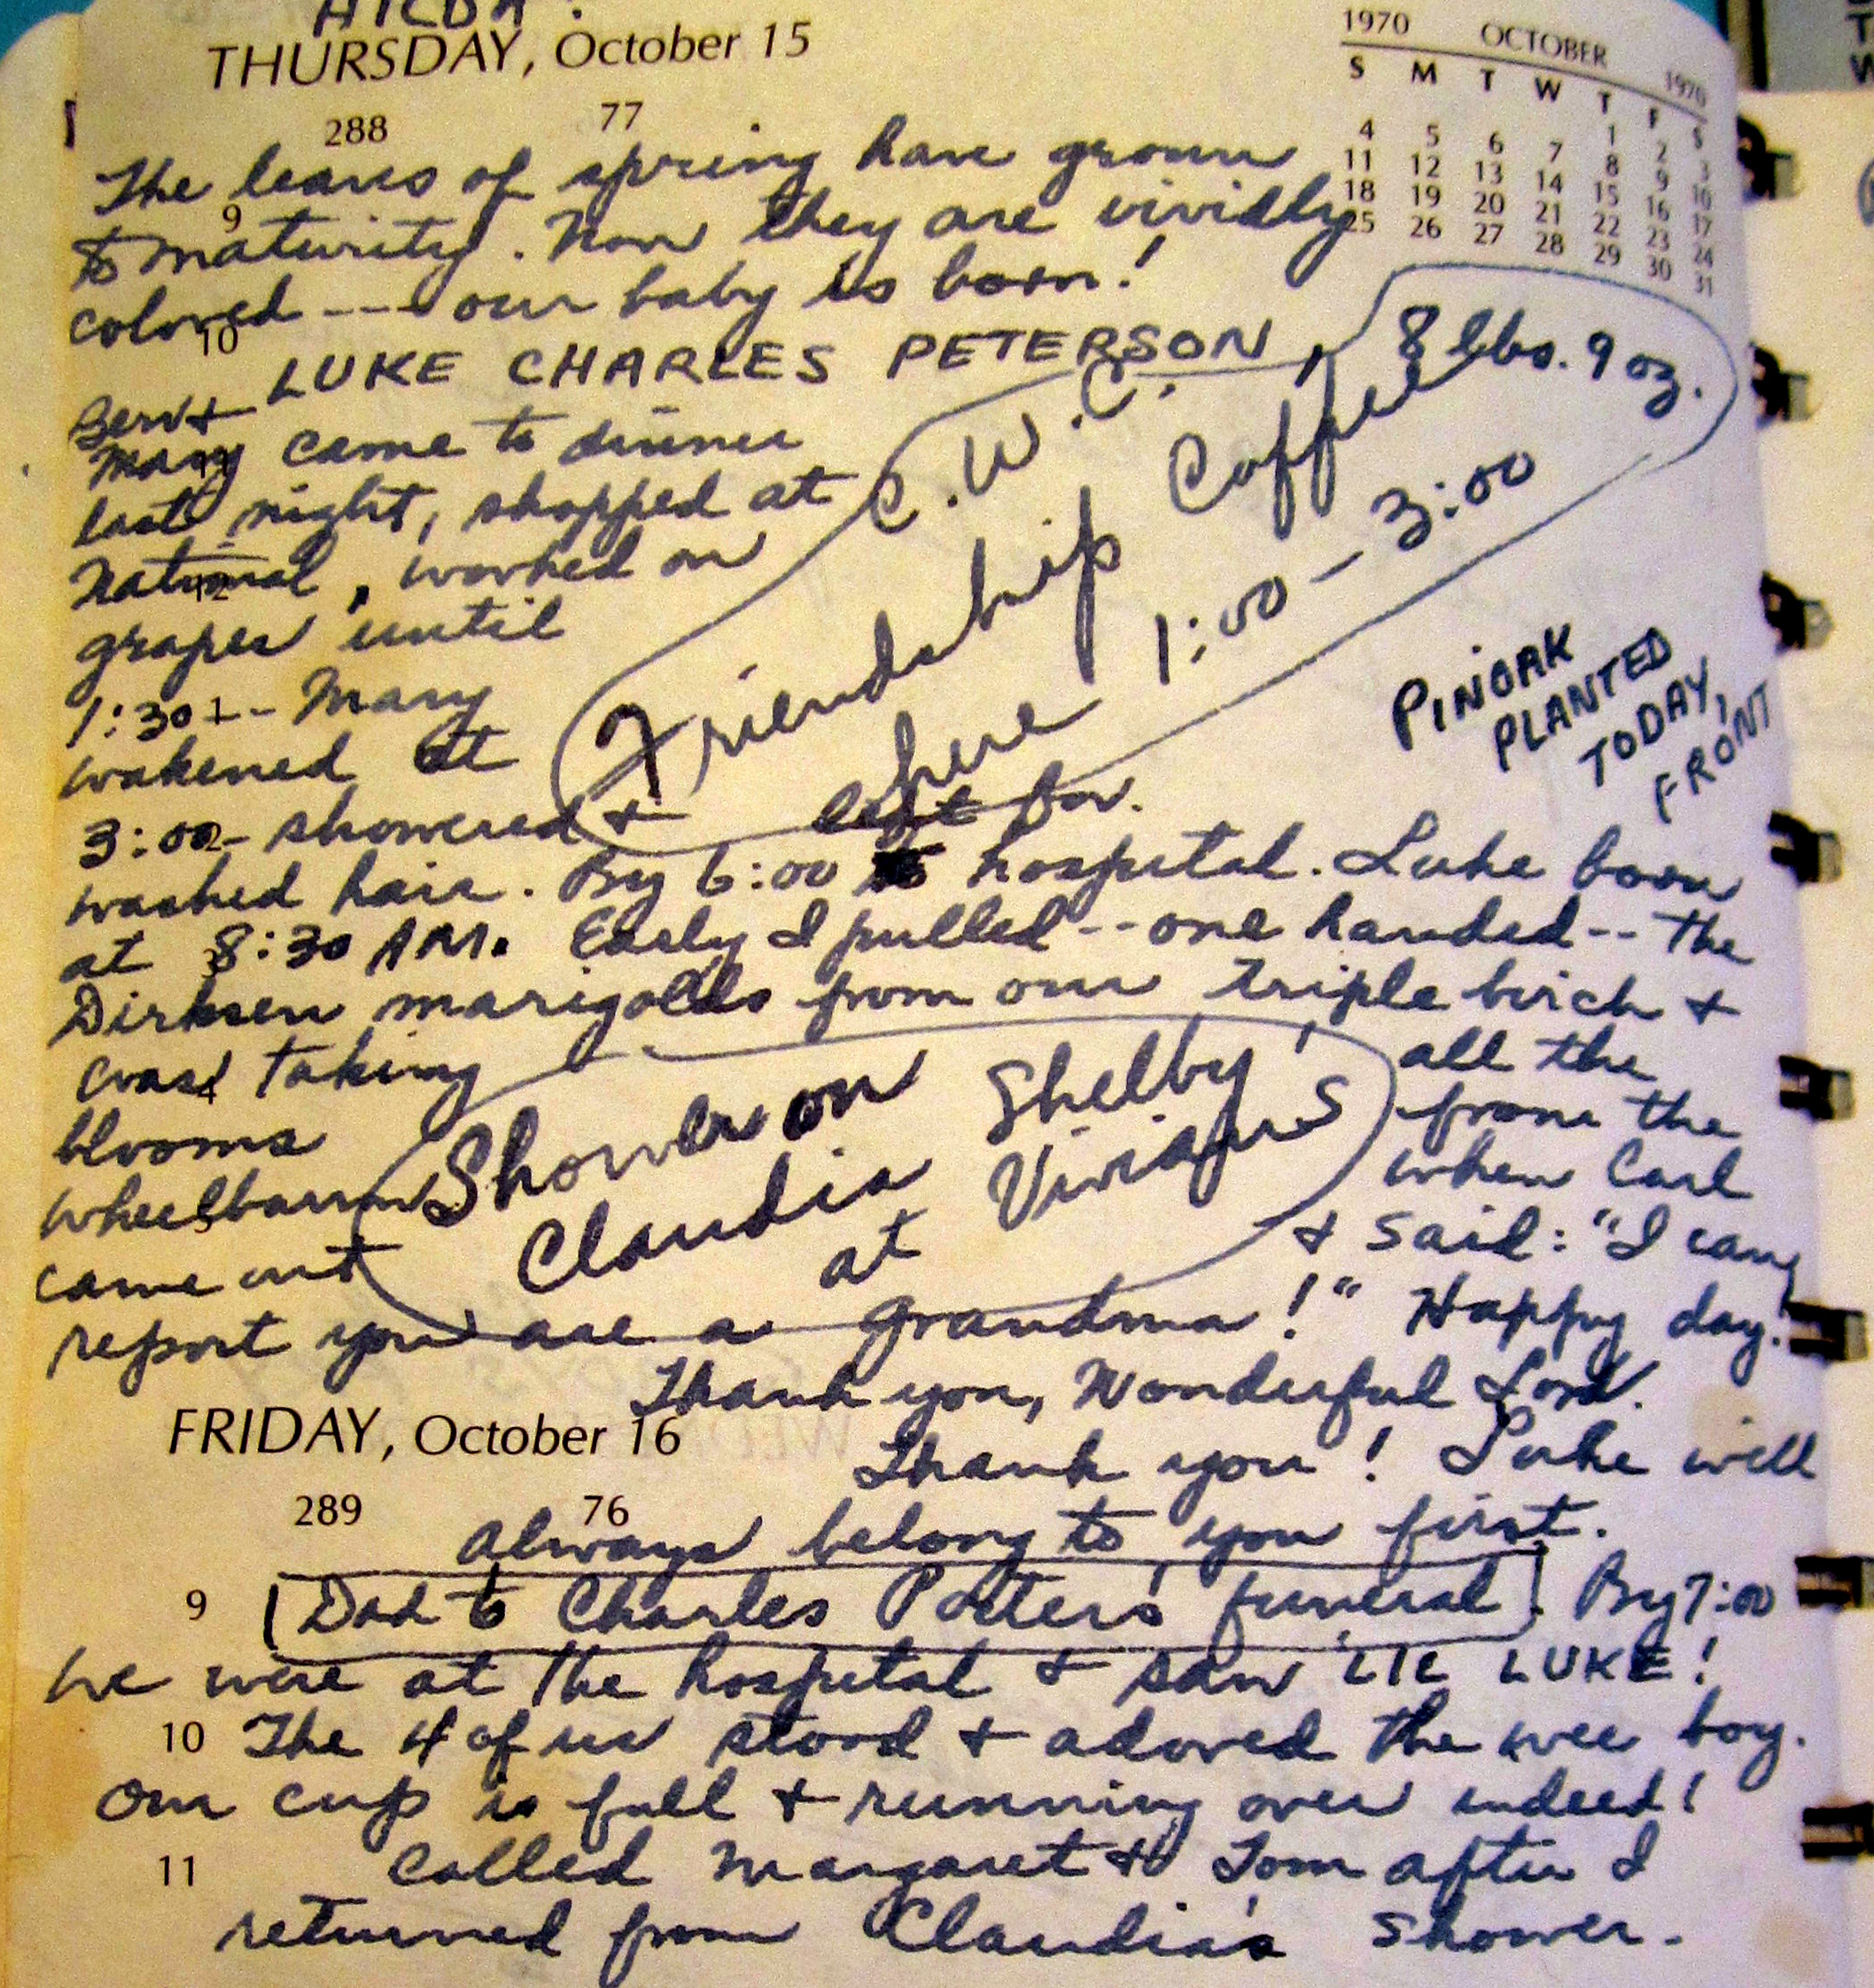 THURSDAY, October 15
1970 OCTOBER 1970
S M T W T F S
1 2 3
4 5 6 7 8 9 10
11 12 13 14 15 16 17
18 19 20 21 22 23 24
25 26 27 28 29 30 31
288 77
The leaves of spring have grown
9
to maturity. Now they are vividly
colored --- our baby is born!
10
LUKE CHARLES PETERSON, 8 lbs. 9 oz.
Gerv +
Mary came to dinner
last night, shopped at
National, worked on
12
grapes until
1:30 -- Mary
wakened at
3:00 - showered + left for
2
C.W.C.
Friendship Coffee
here 1:00 - 3:00
PINOAK
PLANTED
TODAY,
FRONT
washed hair. By 6:00 to hospital. Luke born
at 8:30 AM. Early I pulled -- one handed -- the
3
Dirksen marigolds from our triple birch +
was taking all the
4
blooms from the
wheelbarrow when Carl
5
came out + said: "I can
Shower on Shelby
Claudia Vivian's
at
report you are a grandma!" Happy day!
Thank you, Wonderful Lord.
FRIDAY, October 16
Thank you! Luke will
289 76
always belong to you first.
9
Dad to Charles Porters' funeral. By 7:00
we were at the hospital + saw LIL LUKE!
10
The 4 of us stood + adored the wee boy.
Our cup is full + running over indeed!
11
Called Margaret + Tom after I
returned from Claudia's shower.